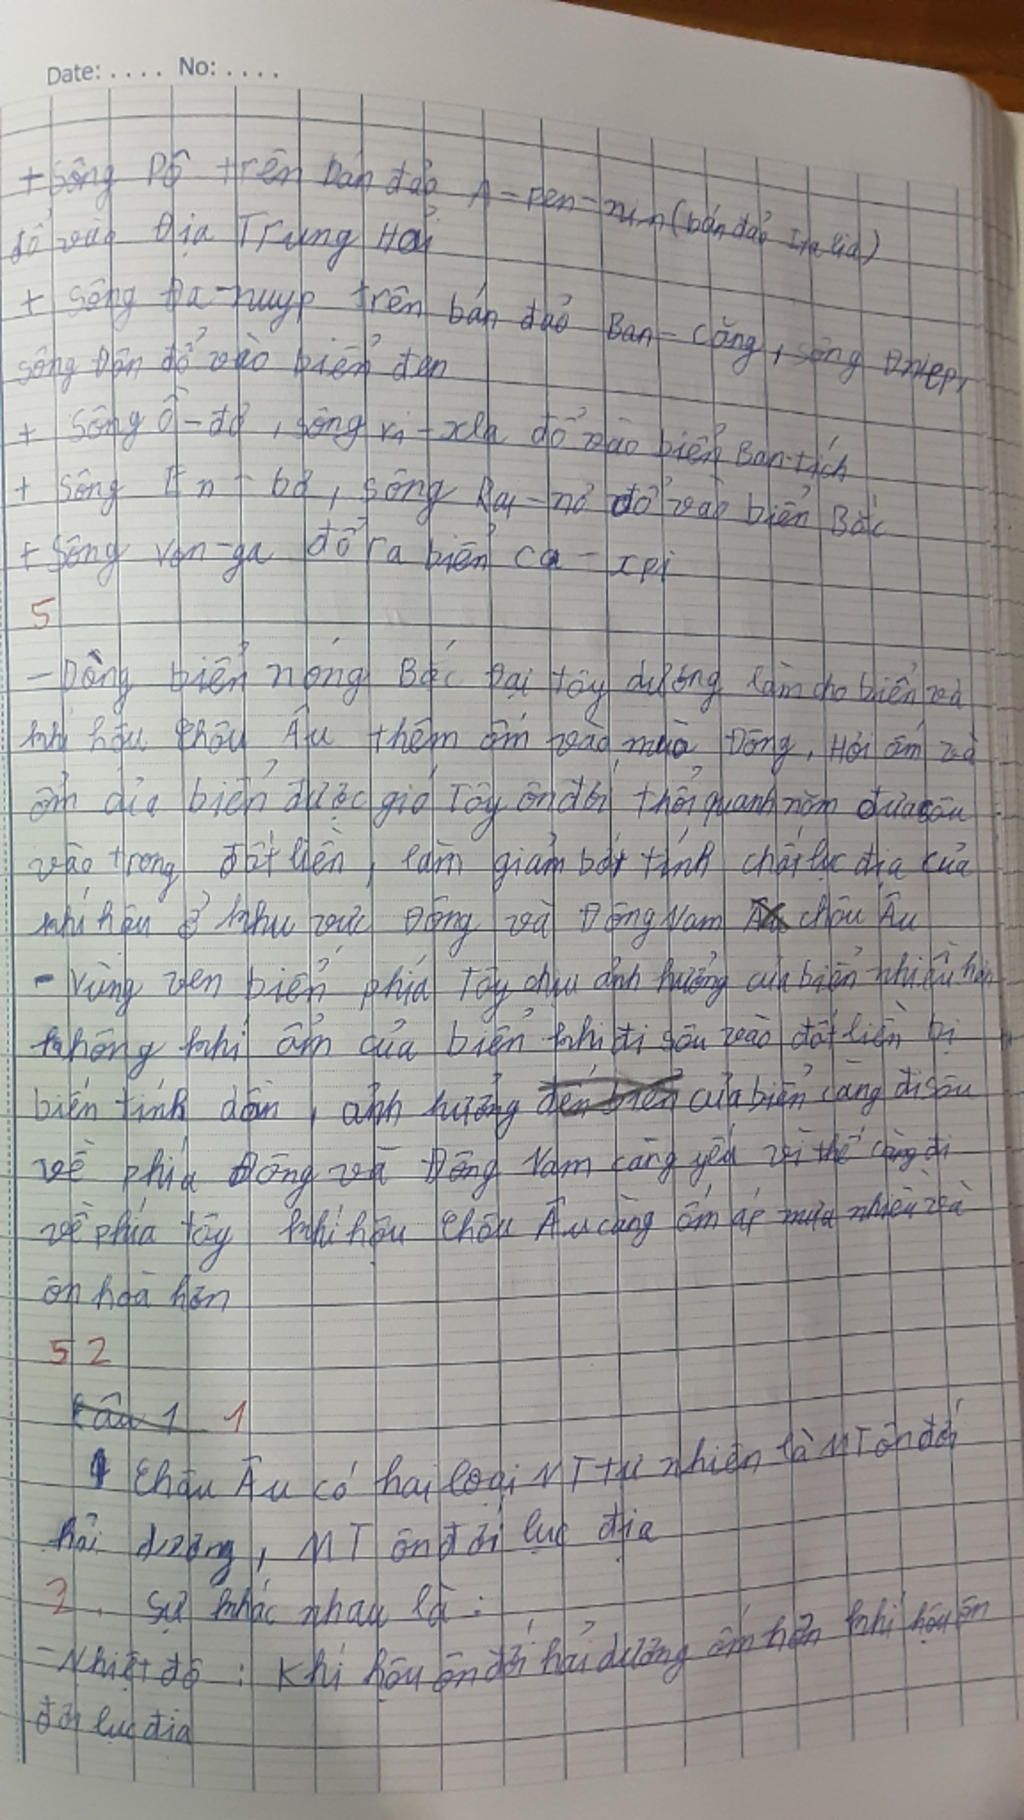 Date: .... No: ....
+ Sông Pô trên bán đảo A-pen-nin (bán đảo Italia)
đổ vào Địa Trung Hải
+ Sông Đa-nuyp trên bán đảo Ban-căng, sông Đniep,
sông Đôn đổ vào biển đen
+ Sông Ô-đơ, sông Vi-xla đổ vào biển Ban-tích
+ Sông En-bơ, sông Rai-nơ đổ vào biển Bắc
+ Sông Von-ga đổ ra biển Ca-xpi
5
- Dòng biển nóng Bắc Đại tây dương làm cho biển và
khí hậu Châu Âu thêm ấm vào mùa Đông, Hơi ấm và
ẩm của biển được gió Tây ôn đới thổi quanh năm đưa sâu
vào trong đất liền, làm giảm bớt tính chất lục địa của
khí hậu ở khu vực Đông và Đông Nam châu Âu
- Vùng ven biển phía Tây chịu ảnh hưởng của biển nhiều hơn
không khí ẩm của biển khi đi sâu vào đất liền bị
biến tính dần, ảnh hưởng đến biển của biển càng đi sâu
về phía Đông và Đông Nam càng yếu vì thế càng đi
về phía tây khí hậu Châu Âu càng ấm áp mưa nhiều và
ôn hoà hơn
52
Câu 1 1
Châu Âu có hai loại MT tự nhiên là MT ôn đới
hải dương, MT ôn đới lục địa
2. Sự khác nhau là:
- Nhiệt độ: Khí hậu ôn đới hải dương ấm hơn khí hậu ôn
đới lục địa